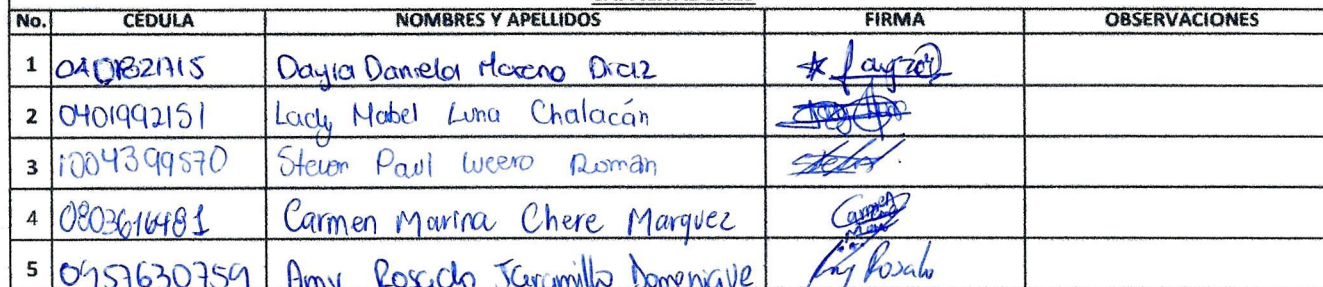 No. CÉDULA NOMBRES Y APELLIDOS FIRMA OBSERVACIONES
1 Dayra Daniela Moreno Diaz
2 0401992151 Lady Mabel Luna Chalacán
3 1004399570 Steven Paul Lucero Román
4 0803616481 Carmen Marina Chere Marquez Carmen
5 0957630759 Amy Rosado Jaramillo Domenique Amy Rosado